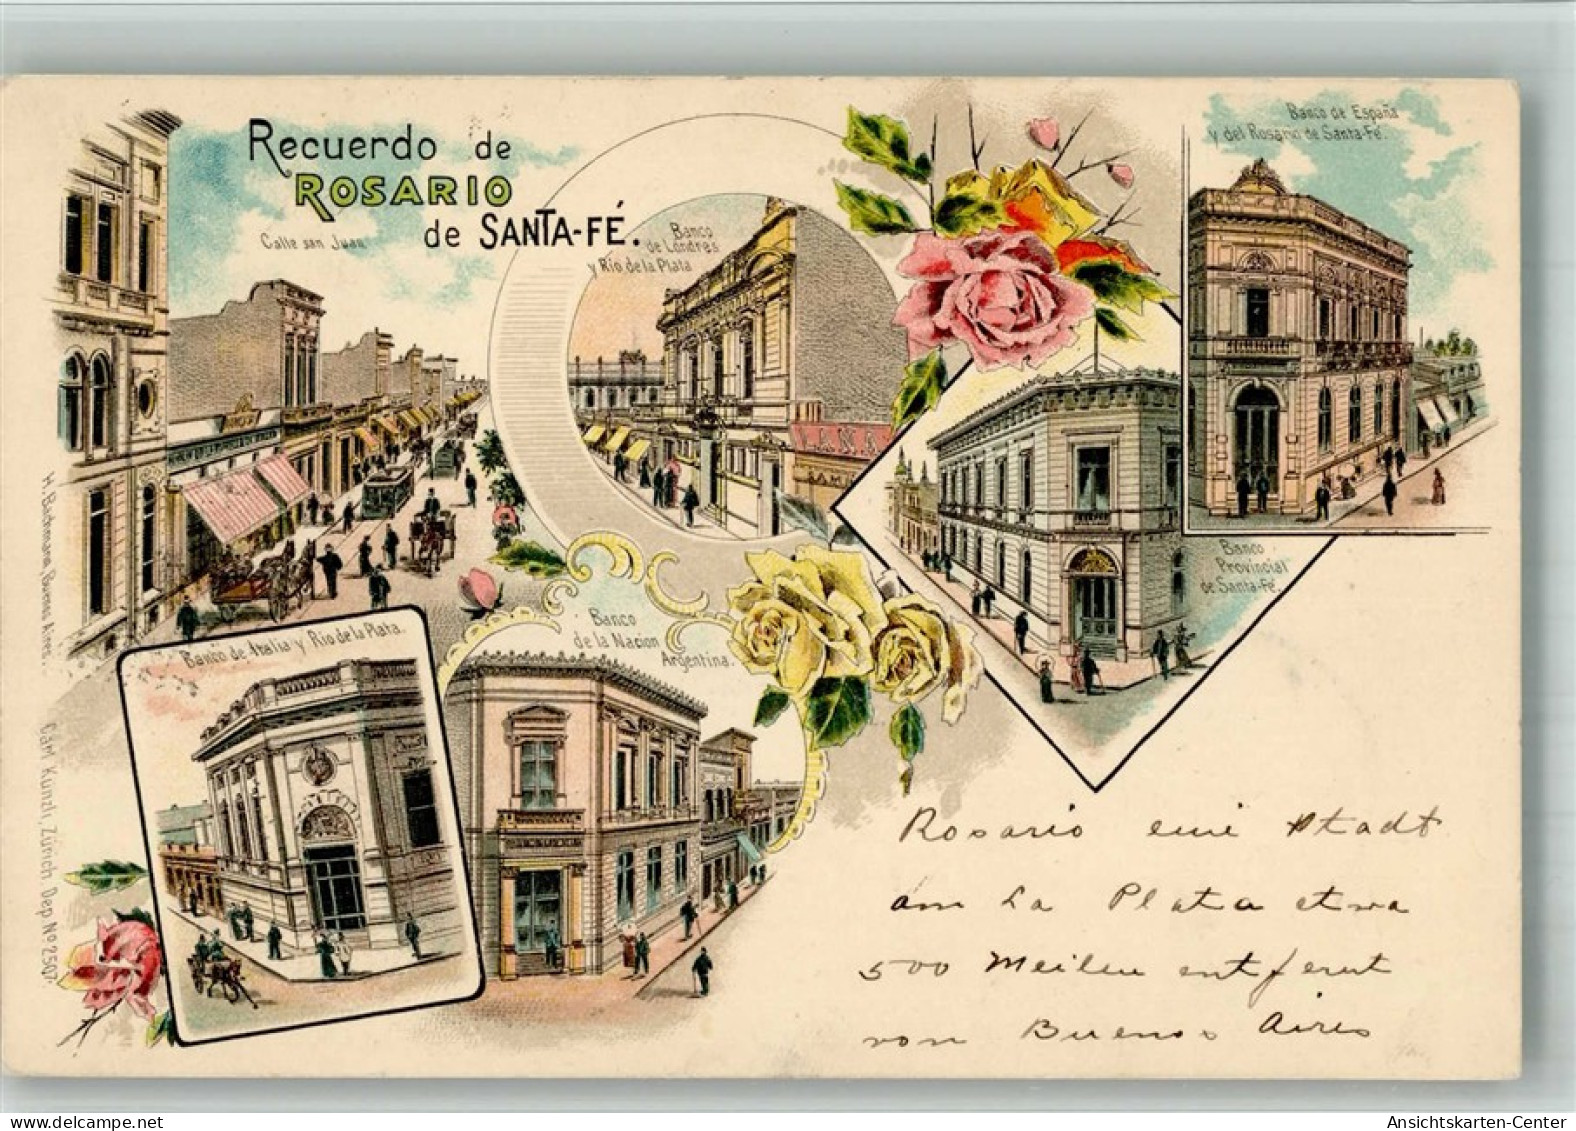 Recuerdo de
ROSARIO
de SANTA-FÉ.
Calle san Juan
Banco
de Londres
y Río de la Plata
Banco de España
y del Rosario de Santa-Fé.
Banco
Provincial
de Santa-Fé.
LANA
Banco de Italia y Rio de la Plata.
Banco
de la Nacion
Argentina.
H. Backmann, Buenos Aires.
Carl Kunzli, Zürich. Dep. No. 2507.
Rosario eine Stadt
am La Plata etwa
500 Meilen entfernt
von Buenos Aires
delcampe.net
Ansichtskarten-Center